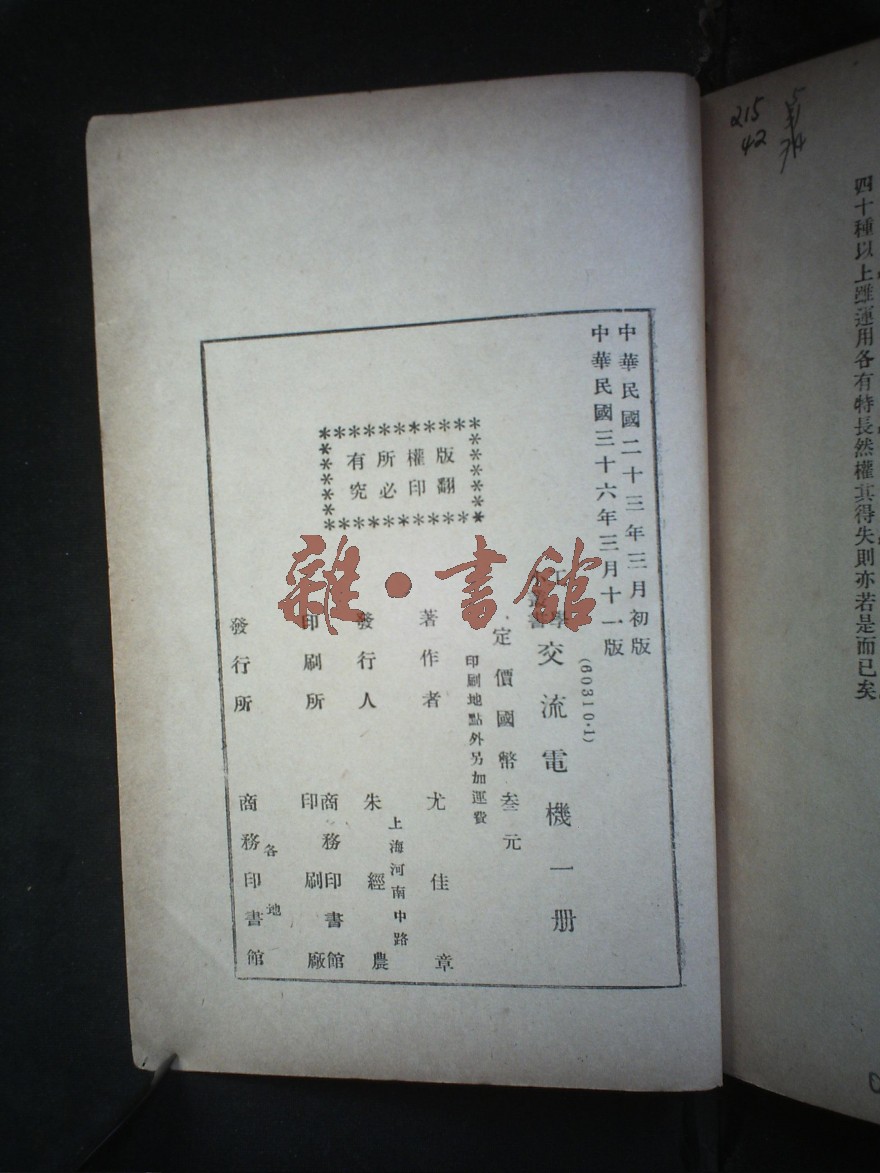 中華民國二十三年三月初版
中華民國三十六年三月十一版
(60310·1)
交流電機一册
定價國幣叁元
印刷地點外另加運費
版權所有
翻印必究
著作者 尤佳章
發行人 朱經農
上海河南中路
印刷所 商務印書館
印刷廠
發行所 商務印書館
各地
雜·書館
215
42
四十種以上雖運用各有特長然權其得失則亦若是而已矣